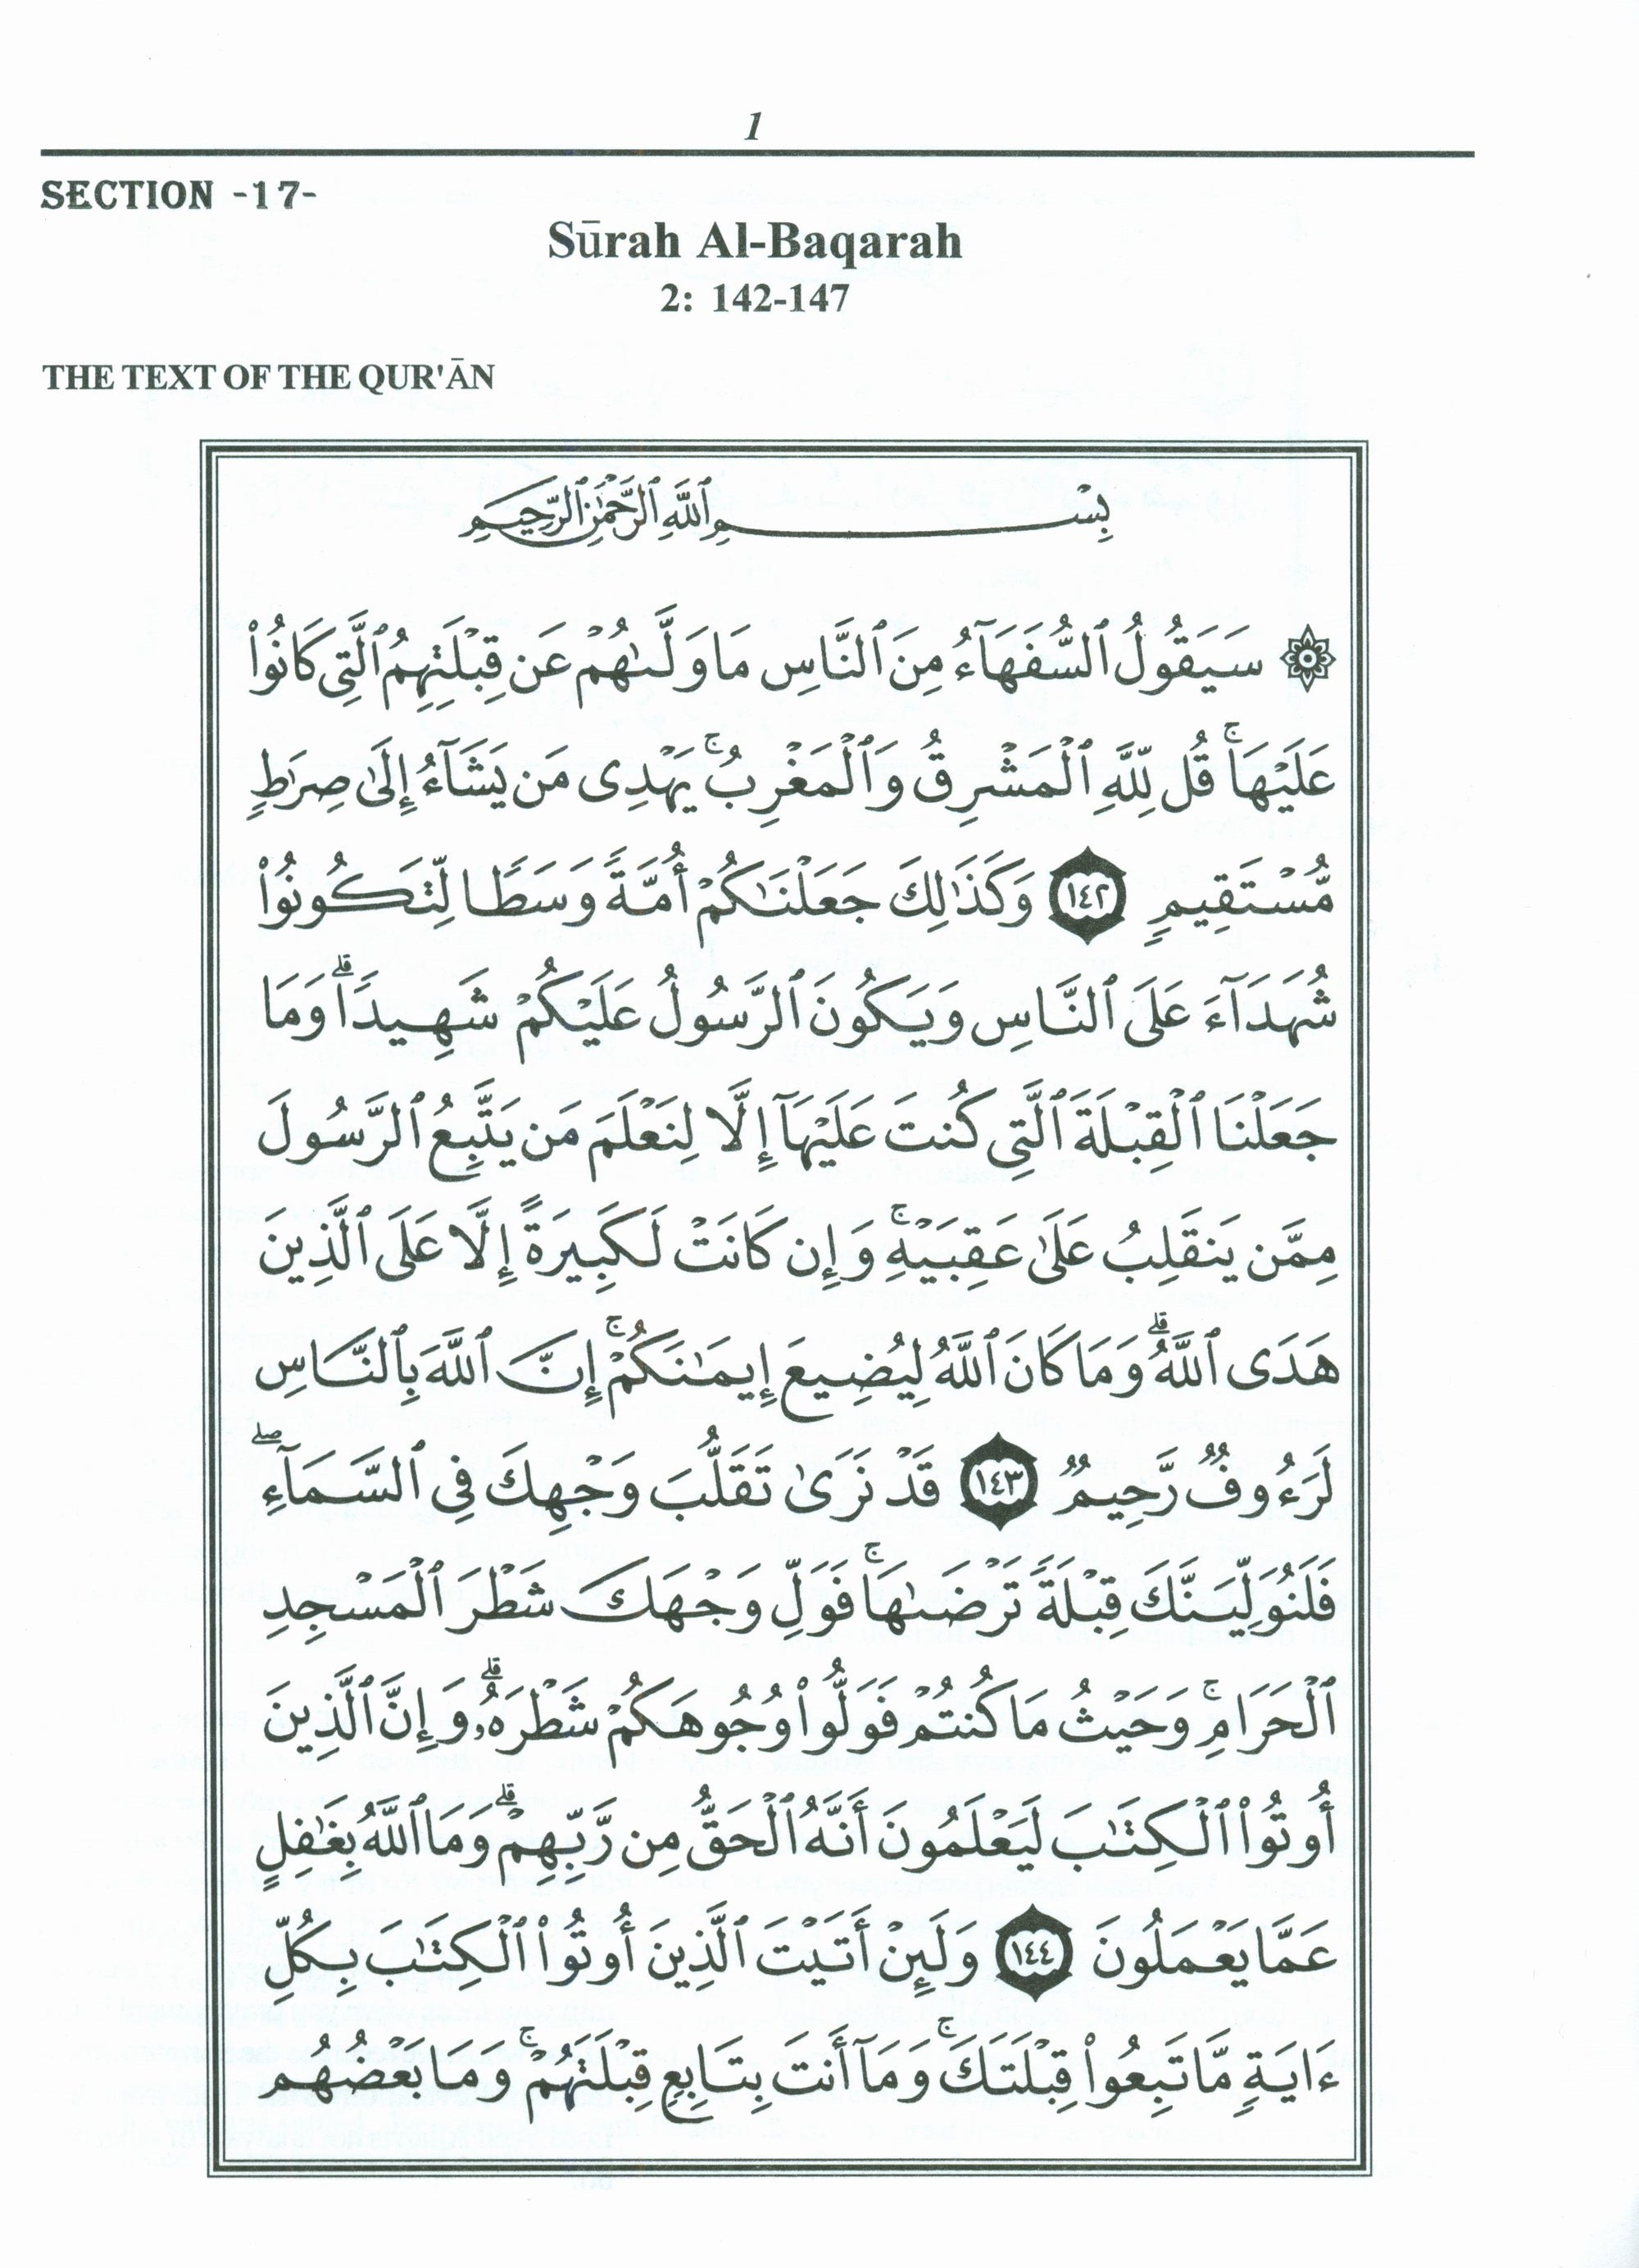 1
SECTION -17-
Sūrah Al-Baqarah
2: 142-147
THE TEXT OF THE QUR'ĀN
بِسْمِ ٱللَّهِ ٱلرَّحْمَٰنِ ٱلرَّحِيمِ
۞ سَيَقُولُ ٱلسُّفَهَآءُ مِنَ ٱلنَّاسِ مَا وَلَّىٰهُمْ عَن قِبْلَتِهِمُ ٱلَّتِى كَانُوا۟
عَلَيْهَا ۚ قُل لِّلَّهِ ٱلْمَشْرِقُ وَٱلْمَغْرِبُ ۚ يَهْدِى مَن يَشَآءُ إِلَىٰ صِرَٰطٍ
مُّسْتَقِيمٍ ١٤٢ وَكَذَٰلِكَ جَعَلْنَٰكُمْ أُمَّةً وَسَطًا لِّتَكُونُوا۟
شُهَدَآءَ عَلَى ٱلنَّاسِ وَيَكُونَ ٱلرَّسُولُ عَلَيْكُمْ شَهِيدًا ۗ وَمَا
جَعَلْنَا ٱلْقِبْلَةَ ٱلَّتِى كُنتَ عَلَيْهَآ إِلَّا لِنَعْلَمَ مَن يَتَّبِعُ ٱلرَّسُولَ
مِمَّن يَنقَلِبُ عَلَىٰ عَقِبَيْهِ ۚ وَإِن كَانَتْ لَكَبِيرَةً إِلَّا عَلَى ٱلَّذِينَ
هَدَى ٱللَّهُ ۗ وَمَا كَانَ ٱللَّهُ لِيُضِيعَ إِيمَٰنَكُمْ ۚ إِنَّ ٱللَّهَ بِٱلنَّاسِ
لَرَءُوفٌ رَّحِيمٌ ١٤٣ قَدْ نَرَىٰ تَقَلُّبَ وَجْهِكَ فِى ٱلسَّمَآءِ ۖ
فَلَنُوَلِّيَنَّكَ قِبْلَةً تَرْضَىٰهَا ۚ فَوَلِّ وَجْهَكَ شَطْرَ ٱلْمَسْجِدِ
ٱلْحَرَامِ ۚ وَحَيْثُ مَا كُنتُمْ فَوَلُّوا۟ وُجُوهَكُمْ شَطْرَهُۥ ۗ وَإِنَّ ٱلَّذِينَ
أُوتُوا۟ ٱلْكِتَٰبَ لَيَعْلَمُونَ أَنَّهُ ٱلْحَقُّ مِن رَّبِّهِمْ ۗ وَمَا ٱللَّهُ بِغَٰفِلٍ
عَمَّا يَعْمَلُونَ ١٤٤ وَلَئِنْ أَتَيْتَ ٱلَّذِينَ أُوتُوا۟ ٱلْكِتَٰبَ بِكُلِّ
ءَايَةٍ مَّا تَبِعُوا۟ قِبْلَتَكَ ۚ وَمَآ أَنتَ بِتَابِعٍ قِبْلَتَهُمْ ۚ وَمَا بَعْضُهُم